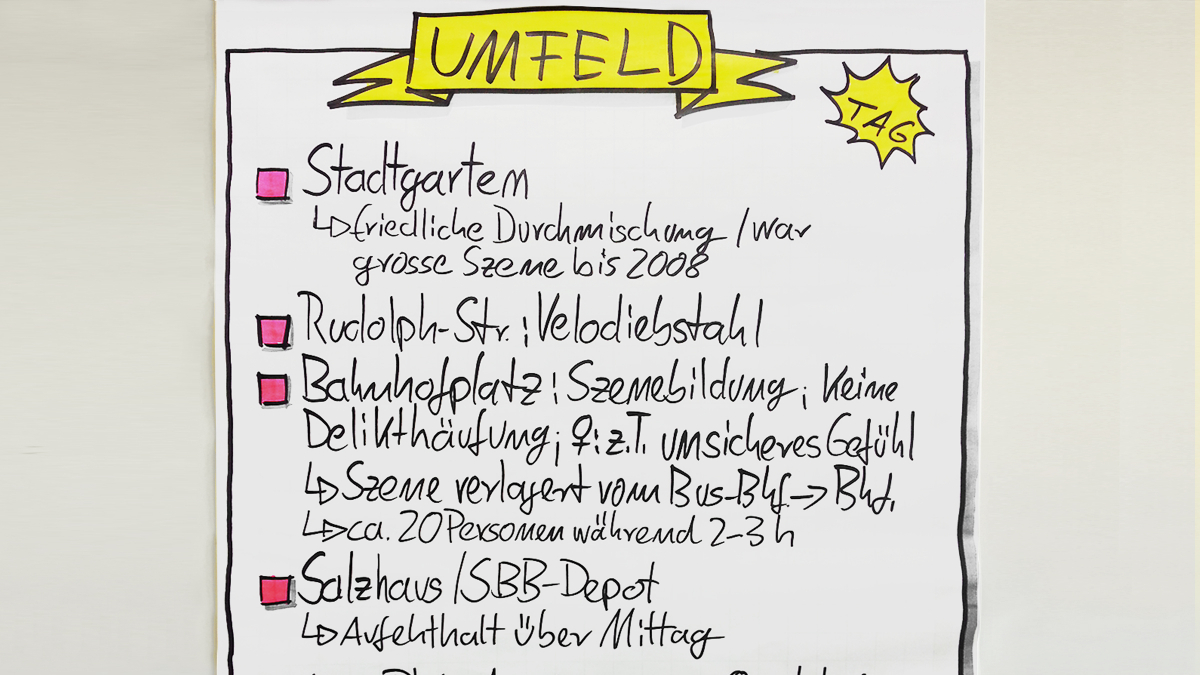 UMFELD
TAG
Stadtgarten
↳ friedliche Durchmischung / war
grosse Szene bis 2008
Rudolph-Str.: Velodiebstahl
Bahnhofplatz: Szenebildung; Keine
Delikthäufung; ♀: z.T. unsicheres Gefühl
↳ Szene verlagert vom Bus-Bhf. → Bhf.
↳ ca. 20 Personen während 2-3 h
Salzhaus / SBB-Depot
↳ Aufehthalt über Mittag